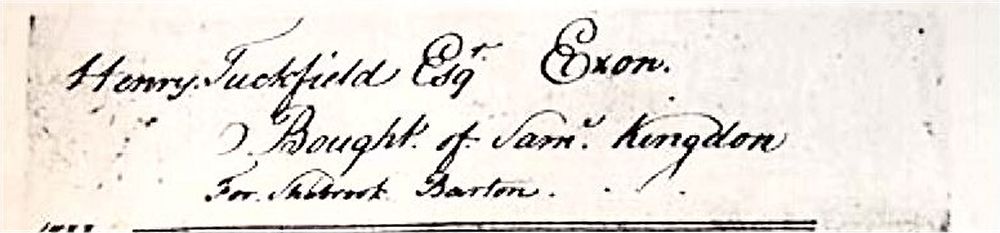 Henry Tuckfield Esqr. Exon.
Bought of Saml. Kingdon
For Shobrook Barton.